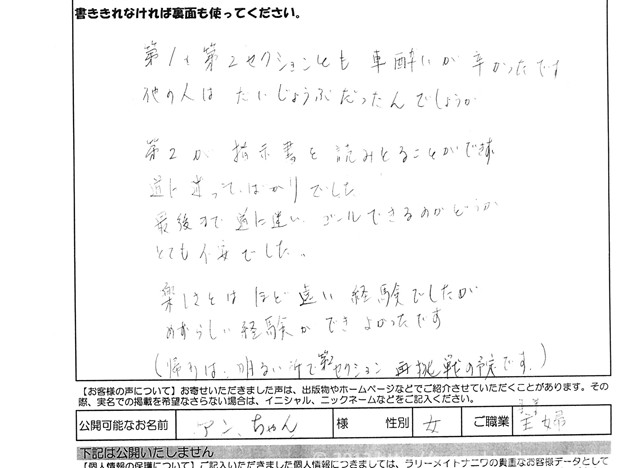 書ききれなければ裏面も使ってください。
第1も第2セクションとも 車酔いが辛かったです
他の人は だいじょうぶだったんでしょうか
第2が 指示書を読みとることができず
道に迷ってばかりでした
最後まで道に迷い、ゴールできるのかどうか
とても不安でした。
楽しさとは ほど遠い 経験でしたが
めずらしい経験ができ よかったです
(帰りは、明るい所で第2セクション 再挑戦の予定です。)
【お客様の声について】お寄せいただきました声は、出版物やホームページなどでご紹介させていただくことがあります。その
際、実名での掲載を希望なさらない場合は、イニシャル、ニックネームなどをご記入ください。
公開可能なお名前 アンちゃん 様 性別 女 ご職業 主婦
下記は公開いたしません
【個人情報の保護について】ご記入いただきました個人情報につきましては、ラリーメイトナニワの貴重なお客様データとして